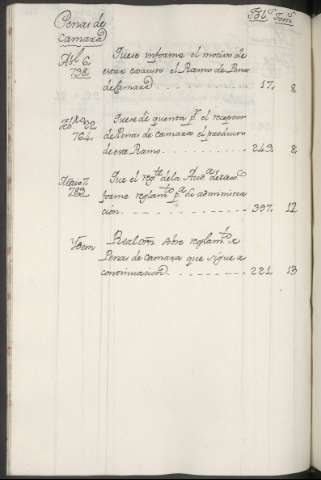 Penas de
Camara
Fol.s Tom.s
Abl. 6.
738.
Que se informe el motivo de
estar escaso el Ramo de Pena
de Camara . . . . . . 17. 8
764.
Que se dé quenta p.r el receptor
de Penas de camara el producto
de este Ramo . . . . . . 243. 8
782
Que el reg.te de la Aud.a
forme reglam.to p.a su administra
ción . . . . . . 397. 12
Ydem
Real orn. sobre reglam.to de
Penas de Camara que sigue a
continuacion . . . . . . 221. 13